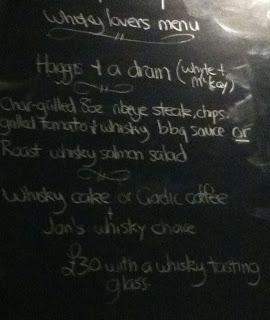 Whisky lovers menu
Haggis + a dram (Whyte + McKay)
Char-grilled 8oz ribeye steak, chips,
grilled tomato + whisky bbq sauce or
Roast whisky salmon salad
Whisky cake or Gaelic coffee
+
Jon's whisky choice
£30 with a whisky tasting
glass